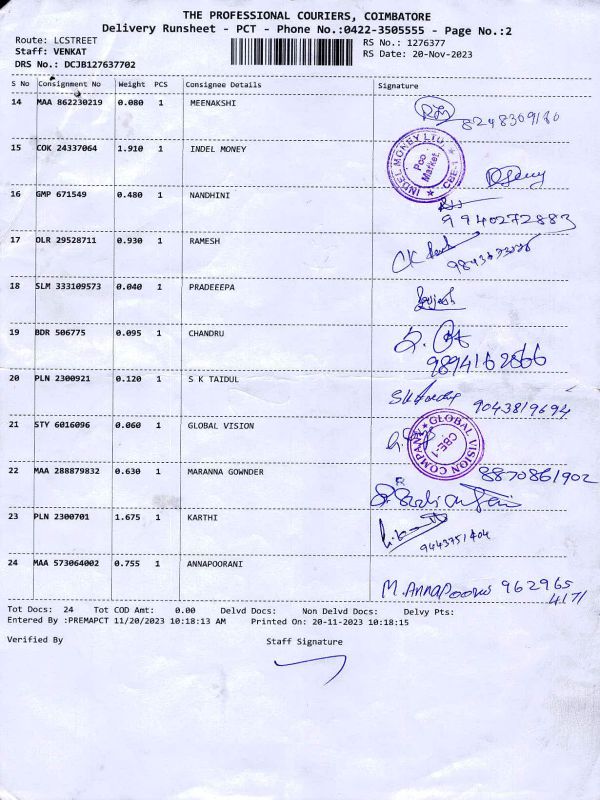 THE PROFESSIONAL COURIERS, COIMBATORE
Delivery Runsheet - PCT - Phone No.:0422-3505555 - Page No.:2
Route: LCSTREET
RS No.: 1276377
Staff: VENKAT
RS Date: 20-Nov-2023
DRS No.: DCJB127637702
S No Consignment No Weight PCS Consignee Details Signature
14 MAA 862230219 0.080 1 MEENAKSHI
8248309180
15 COK 24337064 1.910 1 INDEL MONEY
INDEL MONEY LTD. ★ CBE-1 ★
Poo Market
16 GMP 671549 0.480 1 NANDHINI
9940272883
17 OLR 29528711 0.930 1 RAMESH
18 SLM 333109573 0.040 1 PRADEEEPA
19 BDR 506775 0.095 1 CHANDRU
9894162866
20 PLN 2300921 0.120 1 S K TAIDUL
9043819694
21 STY 6016096 0.060 1 GLOBAL VISION
GLOBAL VISION COMPANY ★
CBE-1
22 MAA 288879832 0.630 1 MARANNA GOWNDER
8870861902
23 PLN 2300701 1.675 1 KARTHI
9443751404
24 MAA 573064002 0.755 1 ANNAPOORANI
M. ANNAPOORNI 962965
4171
Tot Docs: 24 Tot COD Amt: 0.00 Delvd Docs: Non Delvd Docs: Delvy Pts:
Entered By :PREMAPCT 11/20/2023 10:18:13 AM Printed On: 20-11-2023 10:18:15
Verified By Staff Signature